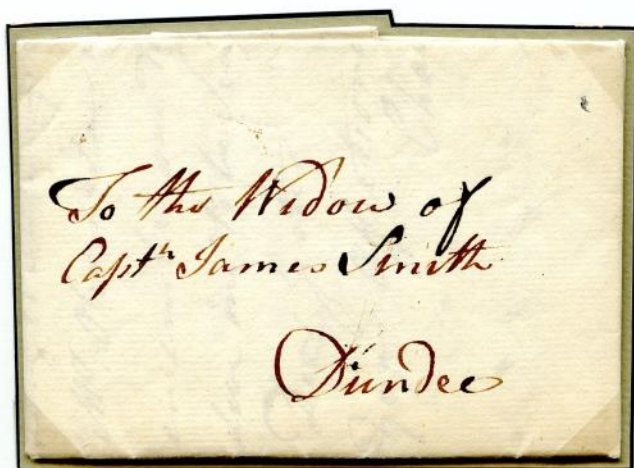 To the Widow of
Captn James Smith
Dundee